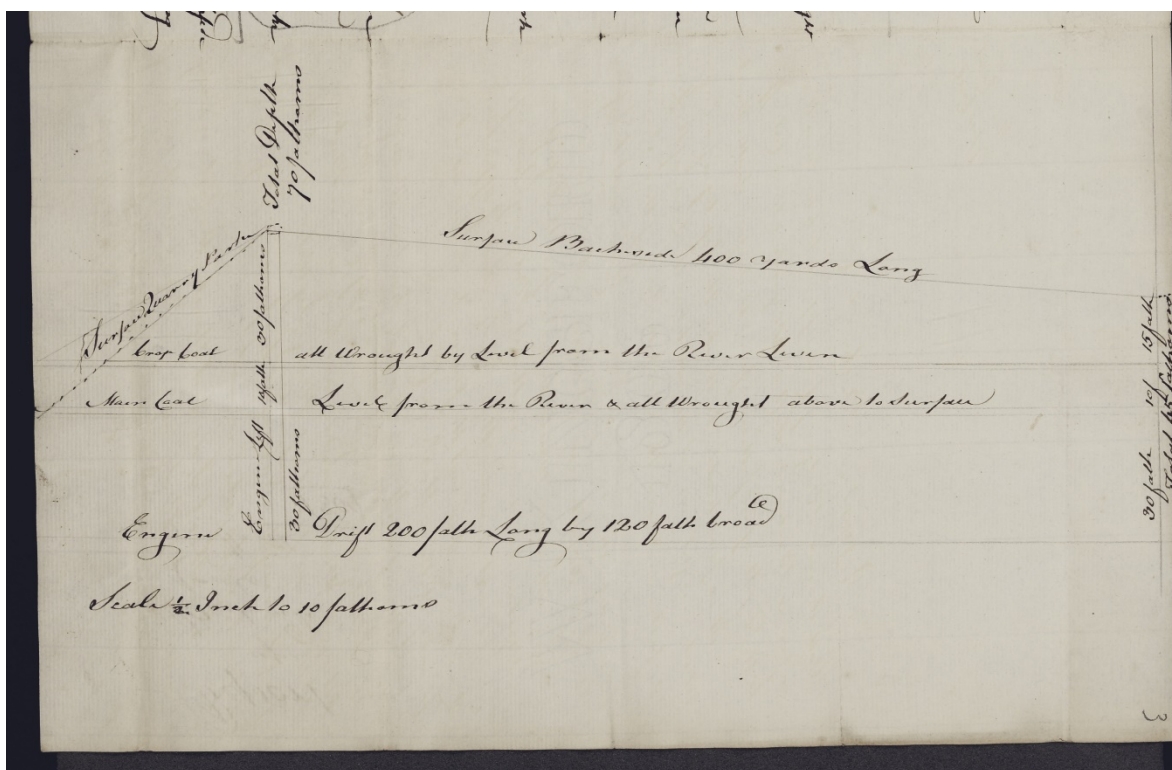 Total Depth
70 fathoms
Surface Backside 400 yards Long
Surface Quarry
30 fathoms
Crop Coal all Wrought by Level from the River Leven
10 fath
Main Coal Level from the River & all Wrought above to Surface
Engine Lift
30 fathoms
Engine Drift 200 fath Long by 120 fath broad
Scale ½ Inch to 10 fathoms
30 fath 10 15 fath
Total fathoms
3